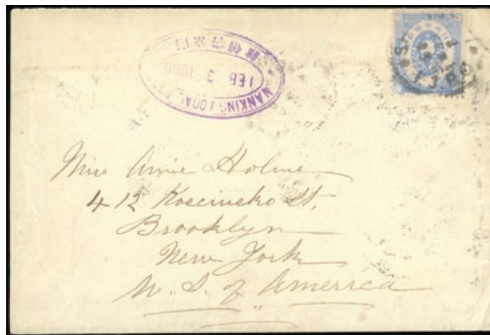 NANKING LOCAL
FEB 3
I.J.P.
Miss Annie Holme
412 Kosciusko St,
Brooklyn
New York
U. S. of America